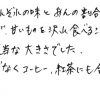 れぞれの味と あんの割合
が 甘いものを沢山食べるこ
当な大きさでした.
でなくコーヒー, 紅茶にも合